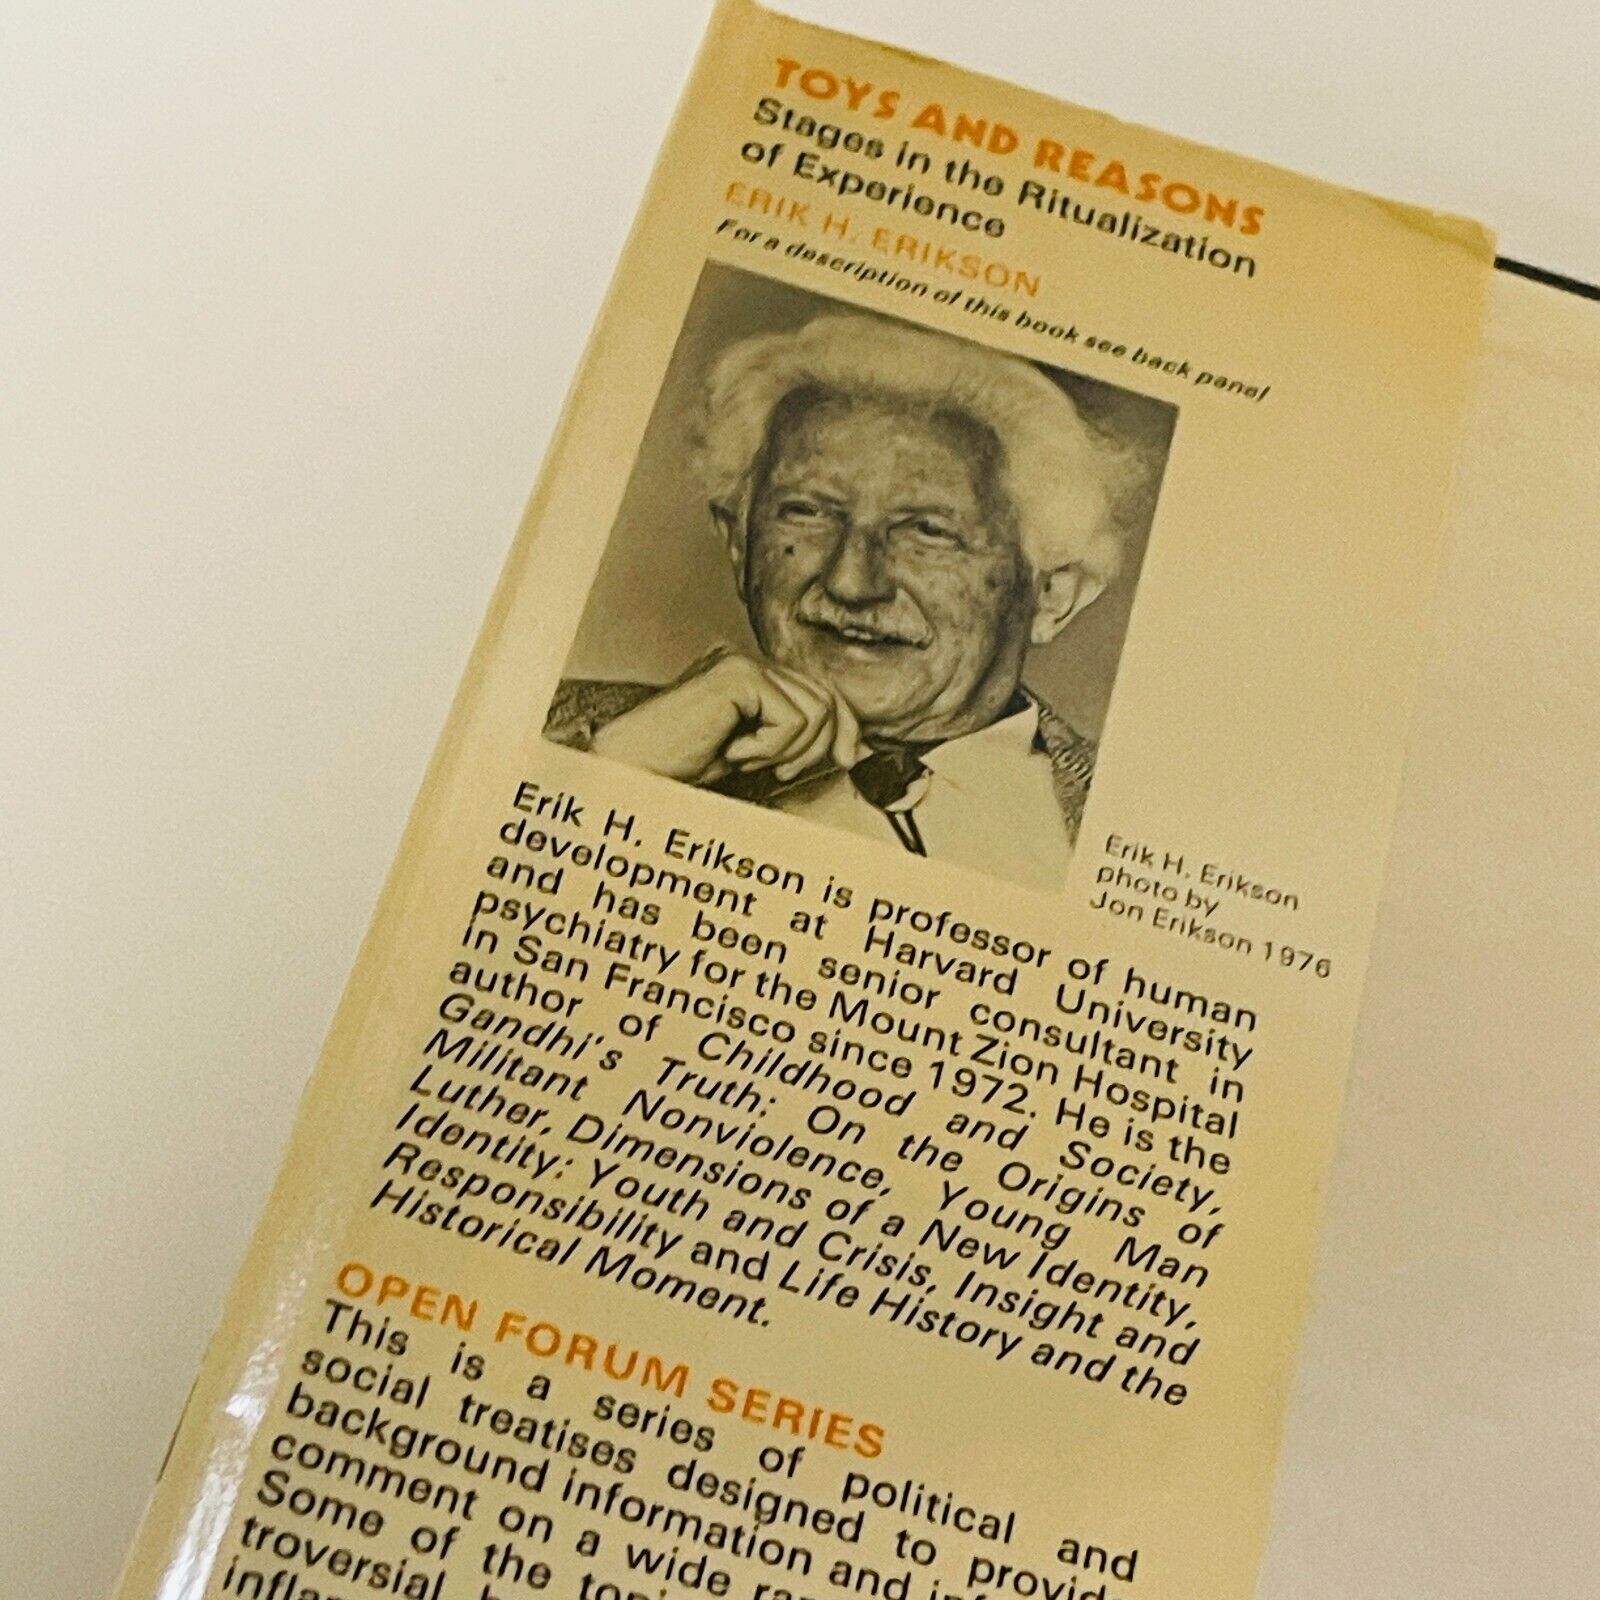 TOYS AND REASONS
Stages in the Ritualization
of Experience
ERIK H. ERIKSON
For a description of this book see back panel
Erik H. Erikson
photo by
Jon Erikson 1976
Erik H. Erikson is professor of human
development at Harvard University
and has been senior consultant in
psychiatry for the Mount Zion Hospital
in San Francisco since 1972. He is the
author of Childhood and Society,
Gandhi's Truth: On the Origins of
Militant Nonviolence, Young Man
Luther, Dimensions of a New Identity,
Identity: Youth and Crisis, Insight and
Responsibility and Life History and the
Historical Moment.
OPEN FORUM SERIES
This is a series of political and
social treatises designed to provide
background information and
comment on a wide
Some of the
troversial